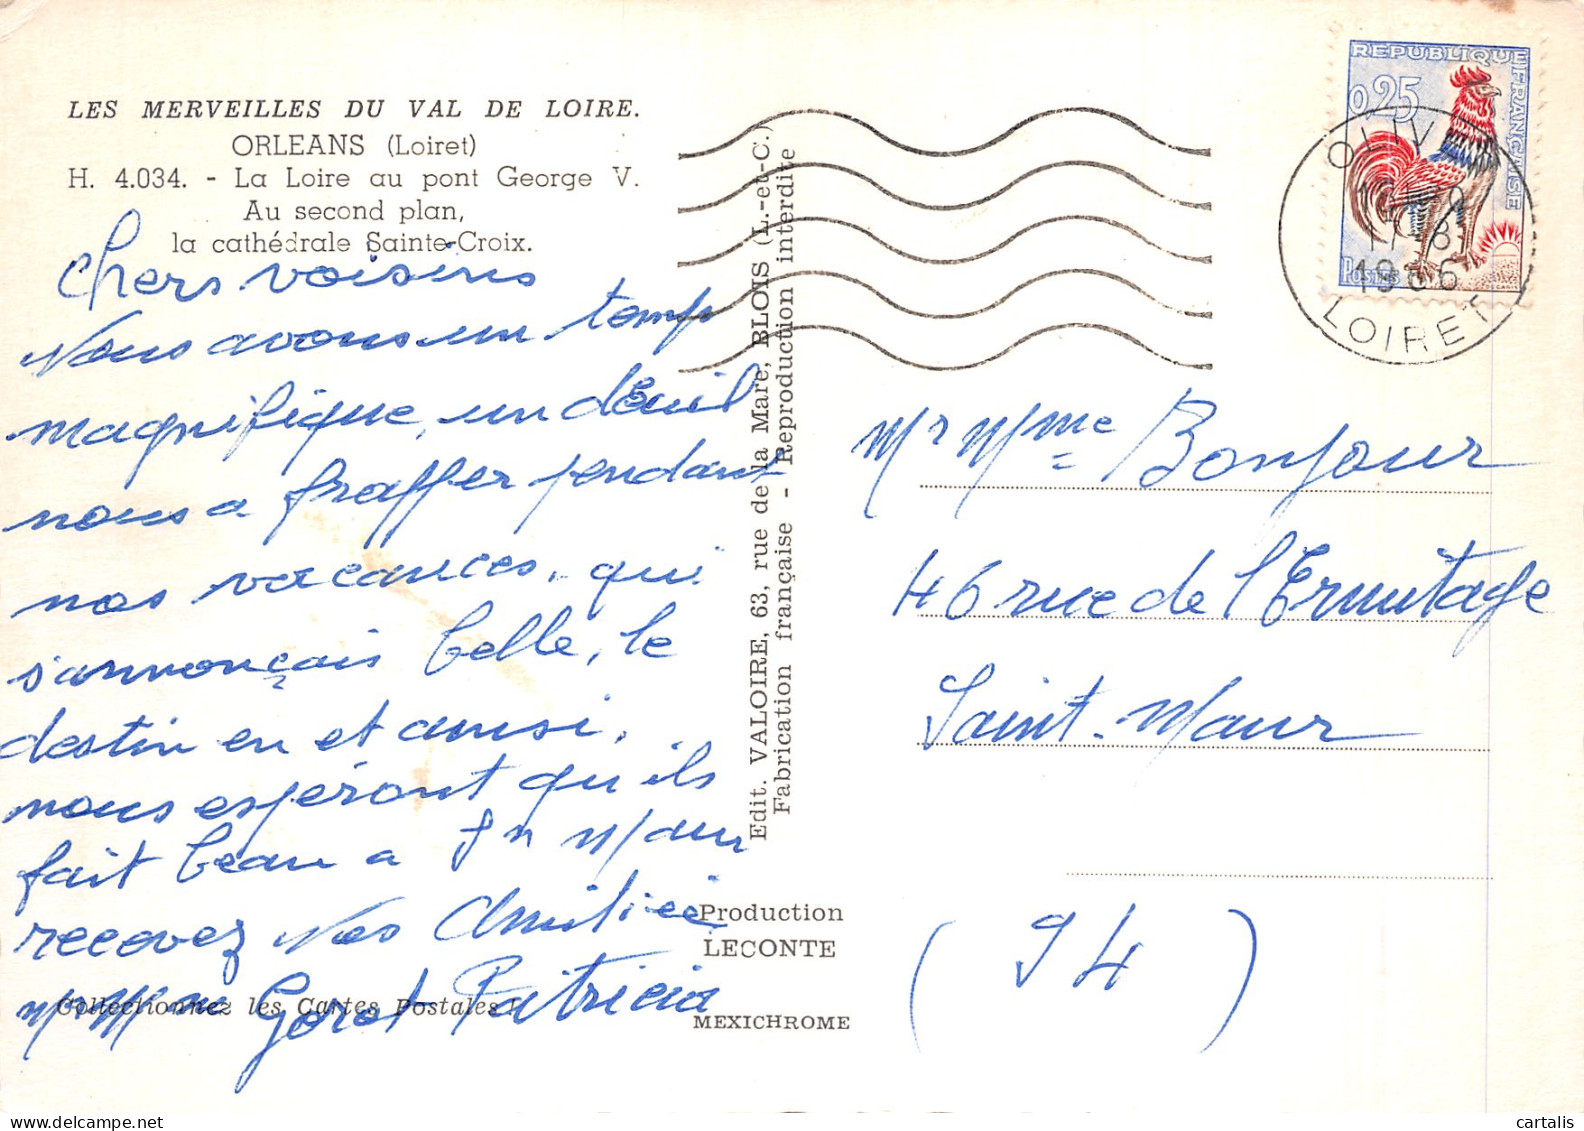 LES MERVEILLES DU VAL DE LOIRE.
ORLEANS (Loiret)
H. 4.034. - La Loire au pont George V.
Au second plan,
la cathédrale Sainte-Croix.
Chers voisins
Nous avons un temps
magnifique, un deuil
nous a frapper pendant
nos vacances, qui
s'annonçais belle, le
destin en et ainsi,
nous espéront qu'ils
fait beau a St Maur
recevez Nos Amitiée
Mr Mme Goret Patricia
Collectionnez les Cartes Postales !
Edit. VALOIRE, 63, rue de la Mare, BLOIS (L.-et-C.)
Fabrication française - Reproduction interdite
Production
LECONTE
MEXICHROME
REPUBLIQUE FRANÇAISE
0,25
POSTES
OLIV
17-8
1966
LOIRET
Mr Mme Bonjour
46 rue de l'Ermitage
Saint-Maur
(94)
cartalis